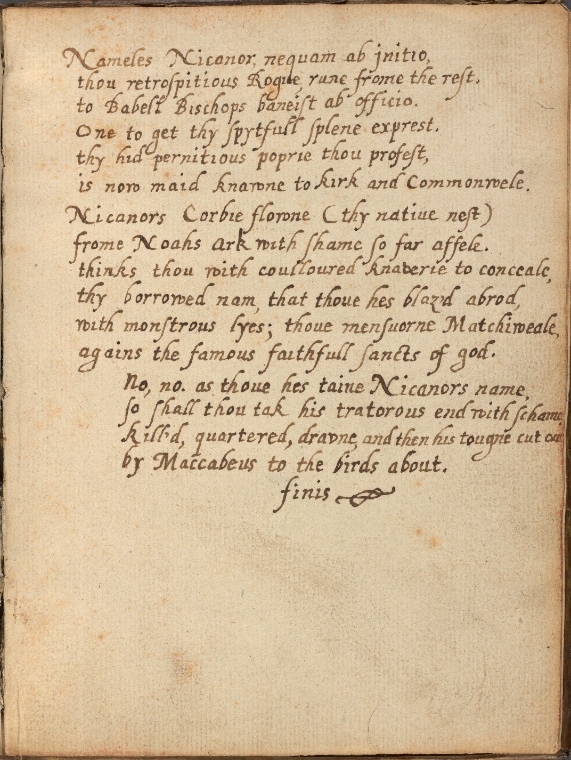 Nameles Nicanor, nequam ab initio,
thou retrospitious Rogue, rune frome the rest.
to Babell Bischops baneist ab officio.
One to get thy spytfull splene exprest.
thy hid pernitious poprie thou profest,
is now maid knawne to kirk and Commonwele.
Nicanors Corbie flowne (thy native nest)
frome Noahs Ark with shame so far affele.
thinks thou with coulloured knaverie to conceale,
thy borrowed nam, that thoue hes blaz'd abrod,
with monstrous lyes; thoue mensuorne Matchiweale,
agains the famous faithfull sancts of god.
No, no. as thoue hes taine Nicanors name,
so shall thou tak his tratorous end with schame
kill'd, quartered, drawne, and then his tougne cut out
by Maccabeus to the birds about.
finis